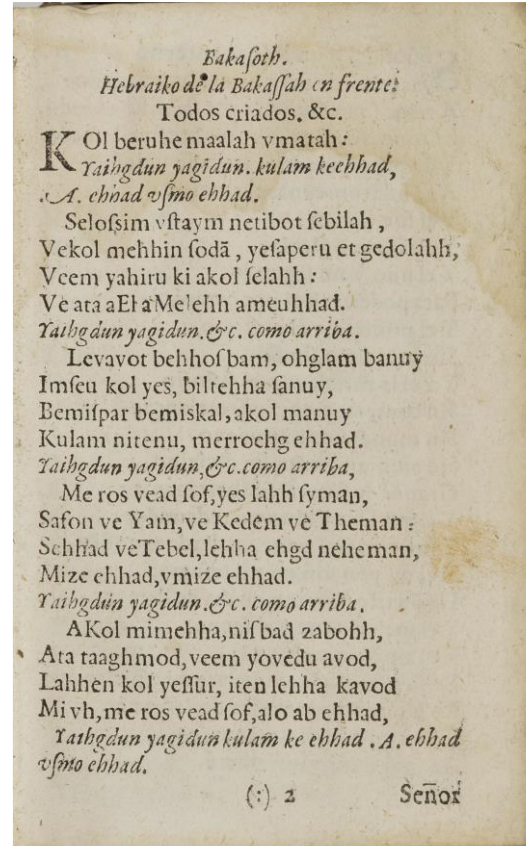 Bakaſoth.
Hebraiko de la Bakaſſah en frente:
Todos criados. &c.
KOl beruhe maalah vmatah:
Yaihgdun yagidun. kulam keehhad,
.A. ehhad vſmo ehhad.
Seloſsim vſtaym netibot ſebilah,
Vekol mehhin ſodā, yeſaperu et gedolahh,
Veem yahiru ki akol ſelahh:
Ve ata aEl aMelehh ameuhhad.
Yaihgdun yagidun. &c. como arriba.
Levavot behhoſbam, ohglam banuy
Imſeu kol yes, biltehha ſanuy,
Bemiſpar bemiskal, akol manuy
Kulam nitenu, merrochg ehhad.
Yaihgdun yagidun, &c. como arriba,
Me ros vead ſof, yes lahh ſyman,
Safon ve Yam, ve Kedem ve Theman:
Sehhad veTebel, lehha ehgd neheman,
Mize ehhad, vmize ehhad.
Yaihgdun yagidun. &c. como arriba.
AKol mimehha, niſbad zabohh,
Ata taaghmod, veem yovedu avod,
Lahhen kol yeſſur, iten lehha kavod
Mi vh, me ros vead ſof, alo ab ehhad,
Yaihgdun yagidun kulam ke ehhad. A. ehhad
vſmo ehhad.
(:) 2 Señor